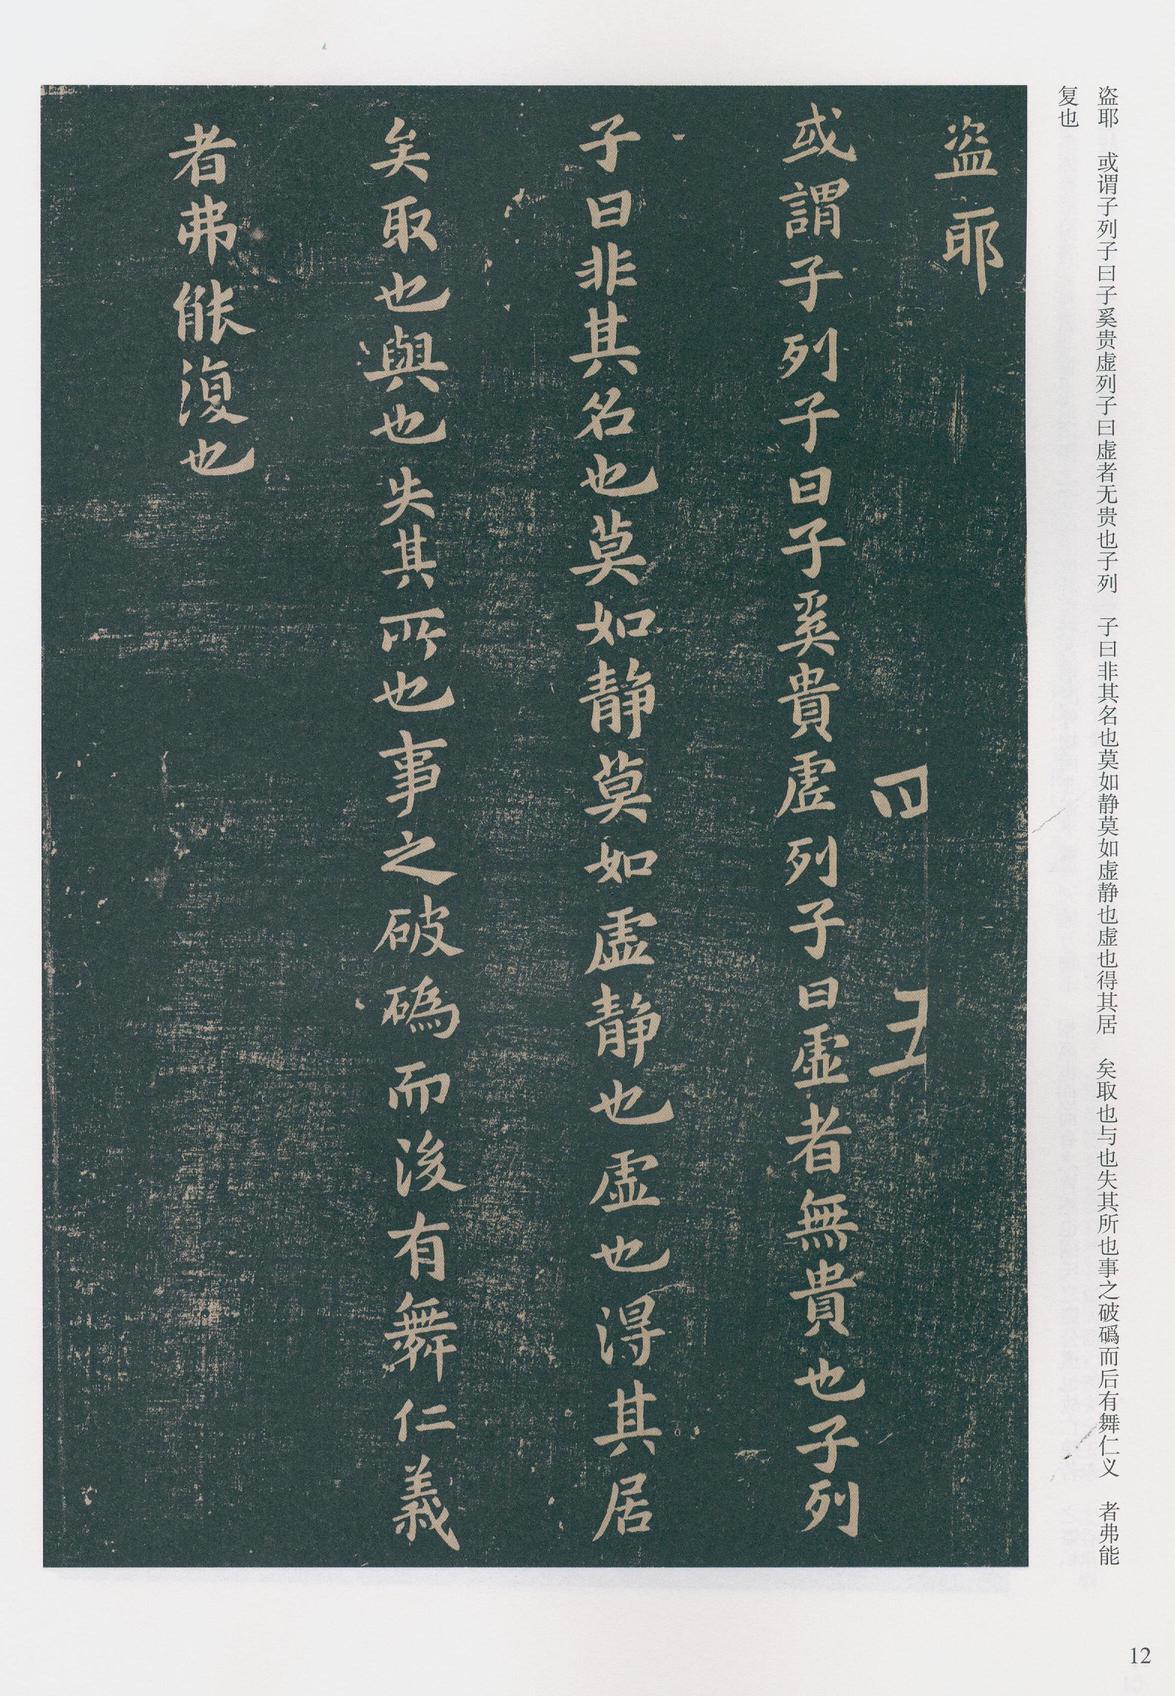 盗耶　或谓子列子曰子奚贵虚列子曰虚者无贵也子列　子曰非其名也莫如静莫如虚静也虚也得其居　矣取也与也失其所也事之破䃣而后有舞仁义　者弗能
复也
盗耶
四　五
或謂子列子曰子奚貴虛列子曰虛者無貴也子列
子曰非其名也莫如静莫如虛静也虛也得其居
矣取也與也失其所也事之破䃣而後有舞仁義
者弗能復也
12